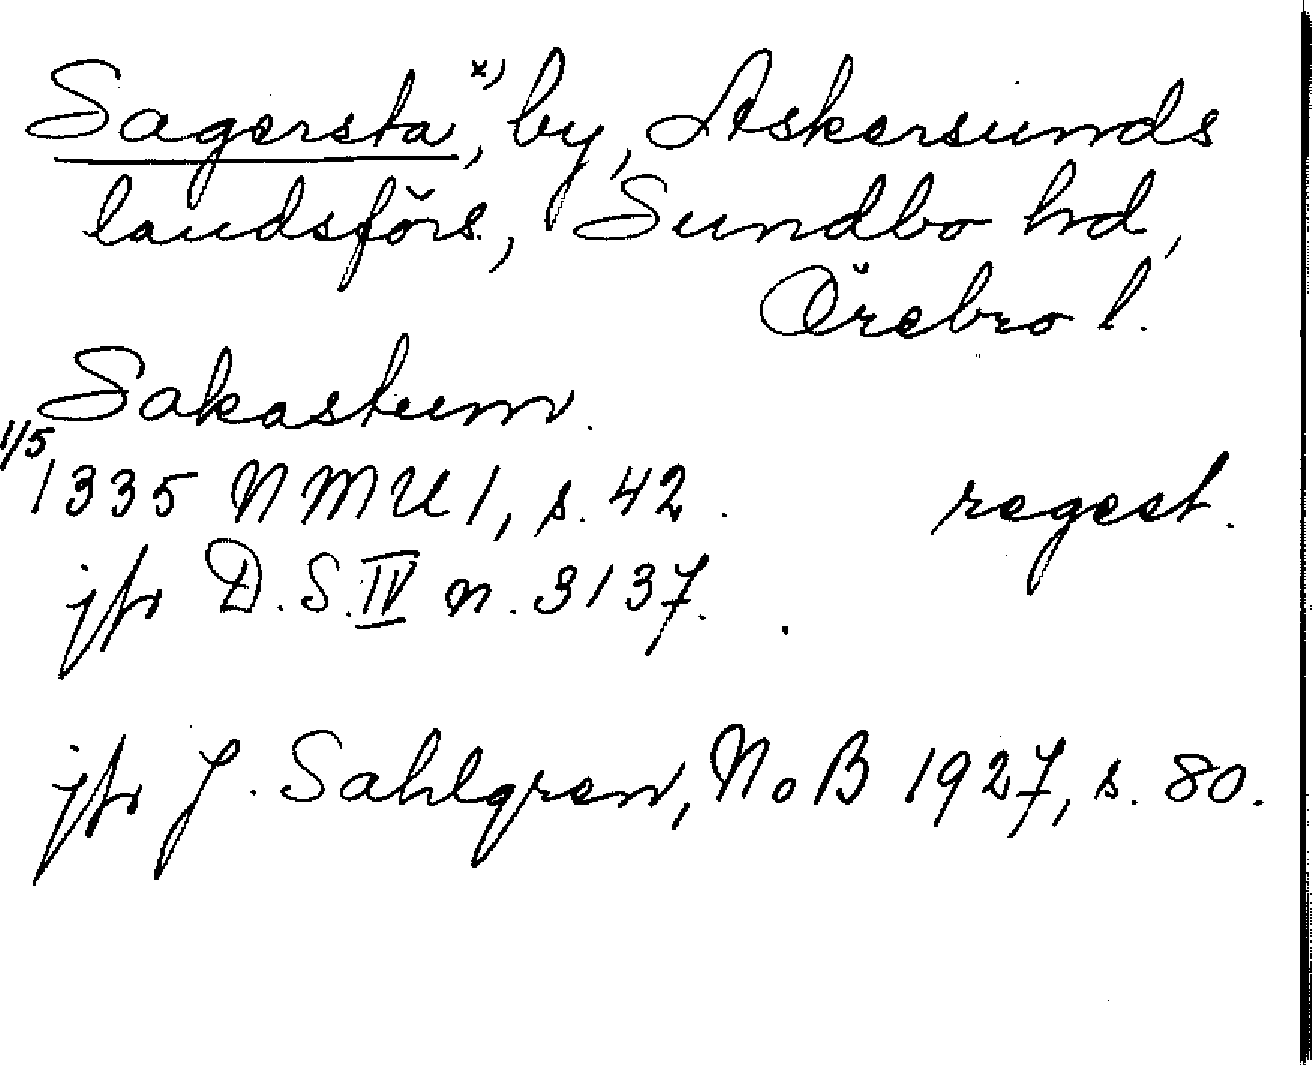 Sagersta x), by, Askersunds
landsförs., Sundbo hd,
Örebro l.
Sakastum.
1/5
1335 NMU 1, s. 42. regest.
jfr D.S. IV n. 3137.
jfr J. Sahlgren, NoB 1927, s. 80.